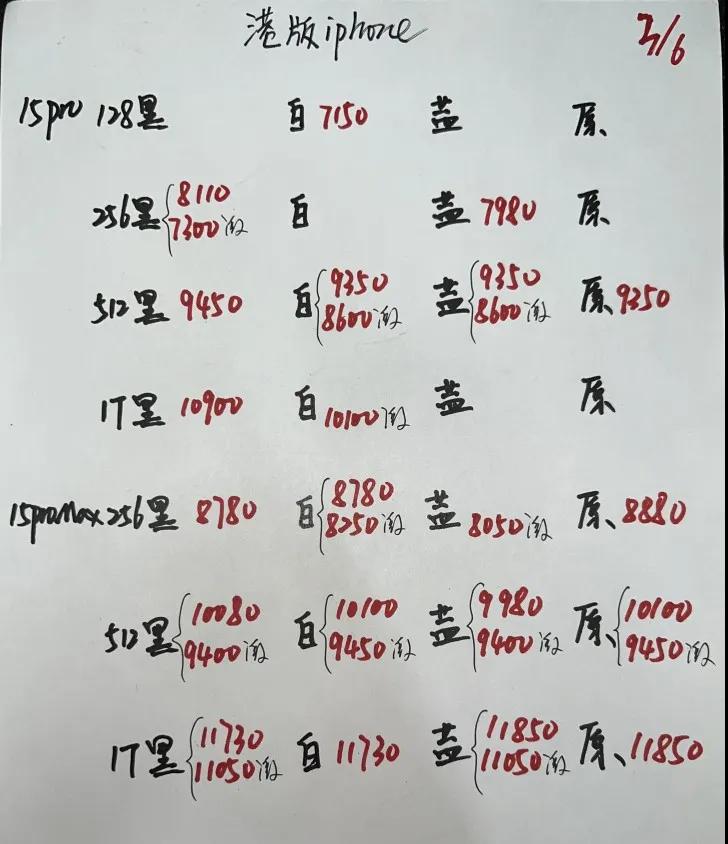 港版iphone 3/6
15pro 128黑 白 7150 蓝 原
256黑 8110 7300激 白 蓝 7980 原
512黑 9450 白 9350 8600激 蓝 9350 8600激 原 9350
1T黑 10900 白 10100激 蓝 原
15proMax 256黑 8780 白 8780 8250激 蓝 8050激 原 8880
512黑 10080 9400激 白 10100 9450激 蓝 9980 9400激 原 10100 9450激
1T黑 11730 11050激 白 11730 蓝 11850 11050激 原 11850